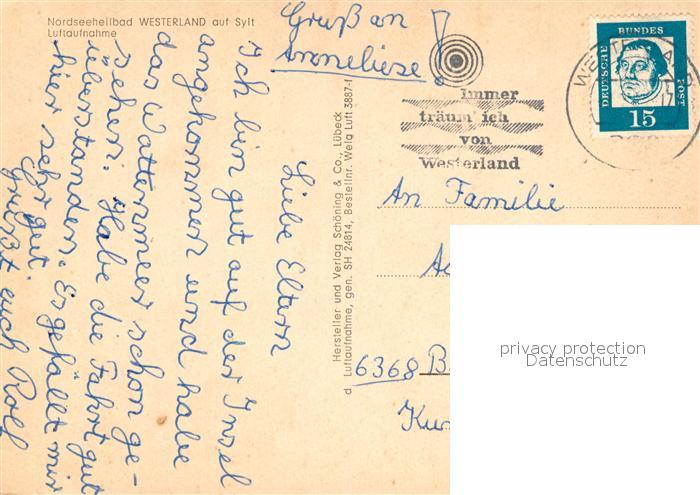 Nordseeheilbad WESTERLAND auf Sylt
Luftaufnahme
Gruß an
Anneliese!
Liebe Eltern
Ich bin gut auf der Insel
angekommen und habe
das Wattenmeer schon ge-
sehen. Habe die Fahrt gut
überstanden. Es gefällt mir
hier sehr gut.
Es
Grüßt euch Rolf
Hersteller und Verlag Schöning & Co., Lübeck
d Luftaufnahme, gen. SH 24814, Bestellnr. Wela Luft 3887-1
Immer
träum' ich
von
Westerland
DEUTSCHE BUNDES POST
15
An Familie
6368 B
privacy protection
Datenschutz